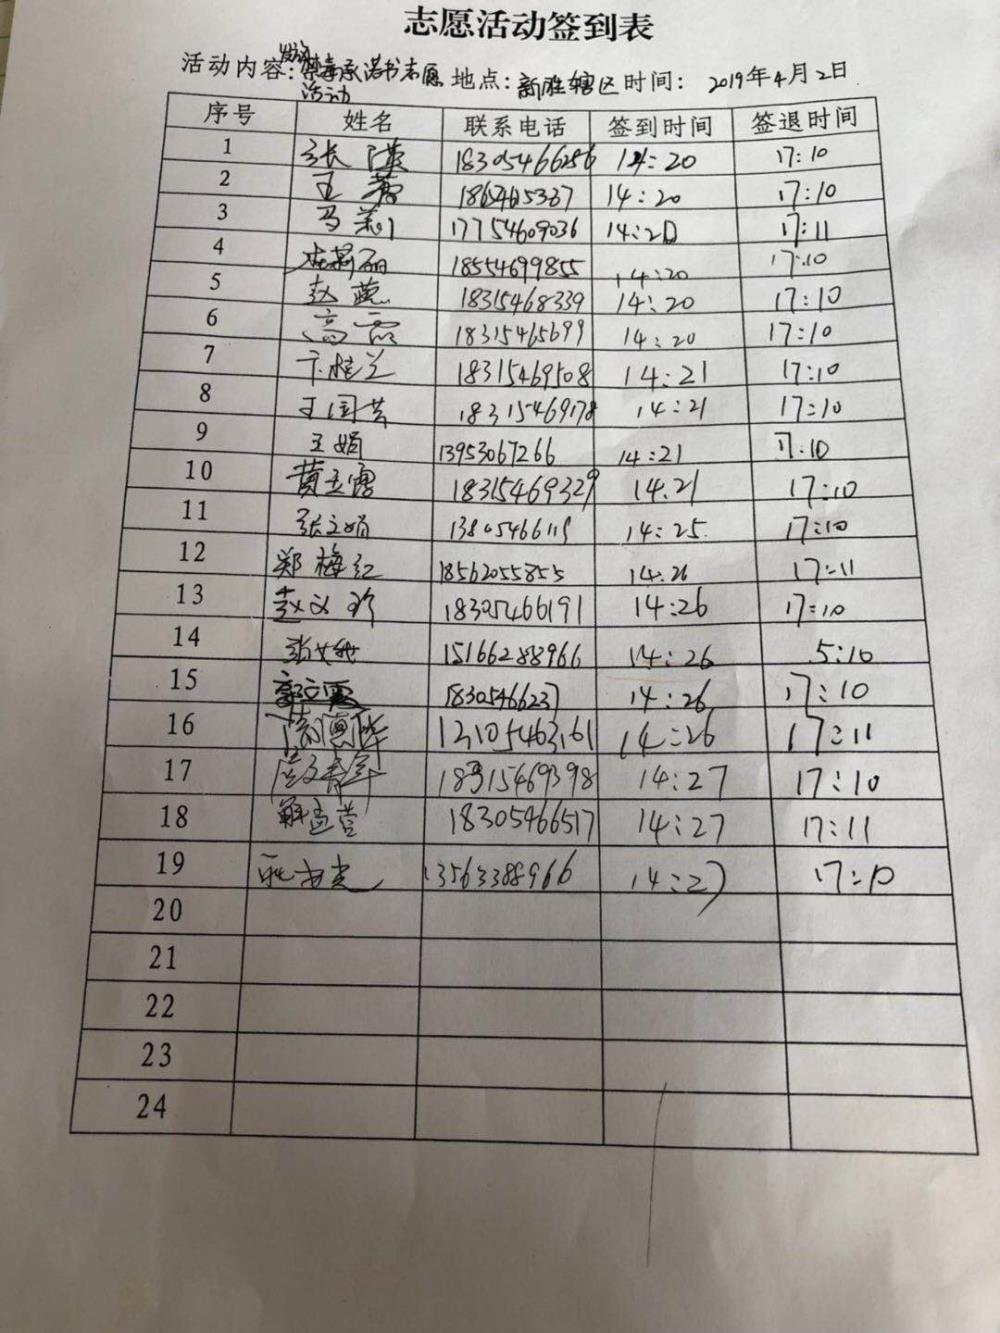 志愿活动签到表
活动内容:发放禁毒承诺书志愿活动 地点:新胜辖区 时间: 2019年4月2日
序号 姓名 联系电话 签到时间 签退时间
1 张 18305466286 14:20 17:10
2 王 1865465337 14:20 17:10
3 马莉 17754609036 14:20 17:11
4 18554699855 14:20 17:10
5 赵 18315468339 14:20 17:10
6 高 18315465699 14:20 17:10
7 卞桂兰 18315469508 14:21 17:10
8 王国芸 18315469178 14:21 17:10
9 王娟 13953067266 14:21 17:10
10 黄玉霞 18315469329 14:21 17:10
11 张立娟 14:25 17:10
12 郑梅红 18562055855 14:26 17:11
13 赵义珍 18305466191 14:26 17:10
14 15166288966 14:26 5:10
15 郭文霞 1830546623 14:26 17:10
16 14:26 17:11
17 18315469398 14:27 17:10
18 解孟营 18305466517 14:27 17:11
19 13563388966 14:27 17:10
20
21
22
23
24